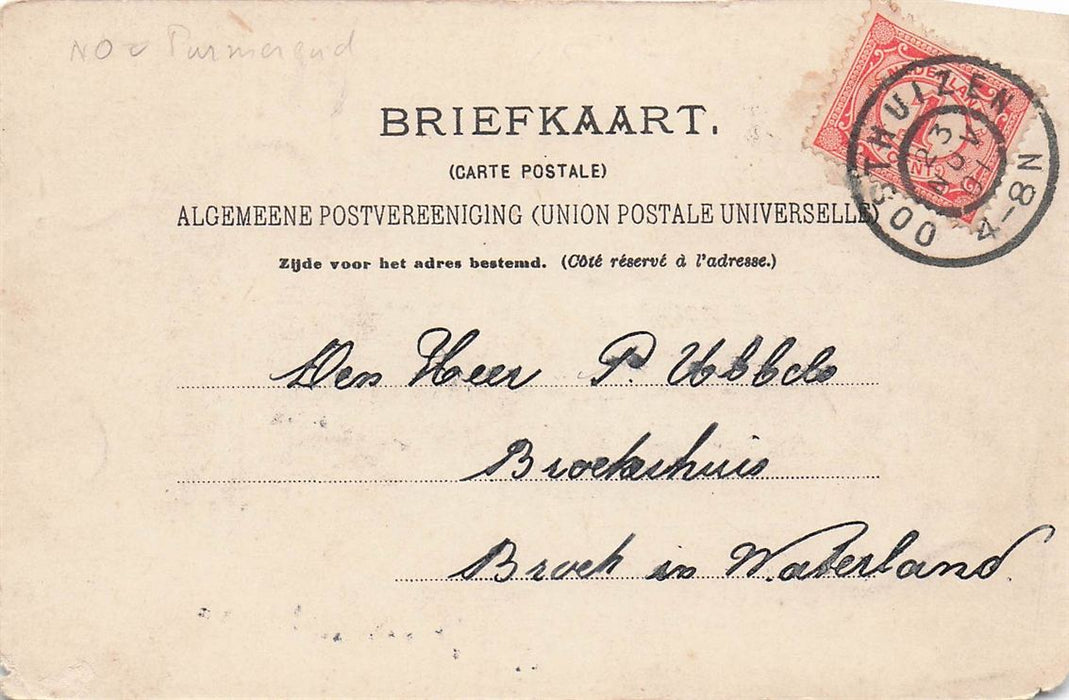 Purmerend
BRIEFKAART.
(CARTE POSTALE)
ALGEMEENE POSTVEREENIGING (UNION POSTALE UNIVERSELLE)
Zijde voor het adres bestemd. (Côté réservé à l'adresse.)
NEDERLAND
1
CENT
OOSTHUIZEN
23
NOV
4-8N
Den Heer P. Ubbels
Broekerhuis
Broek in Waterland.